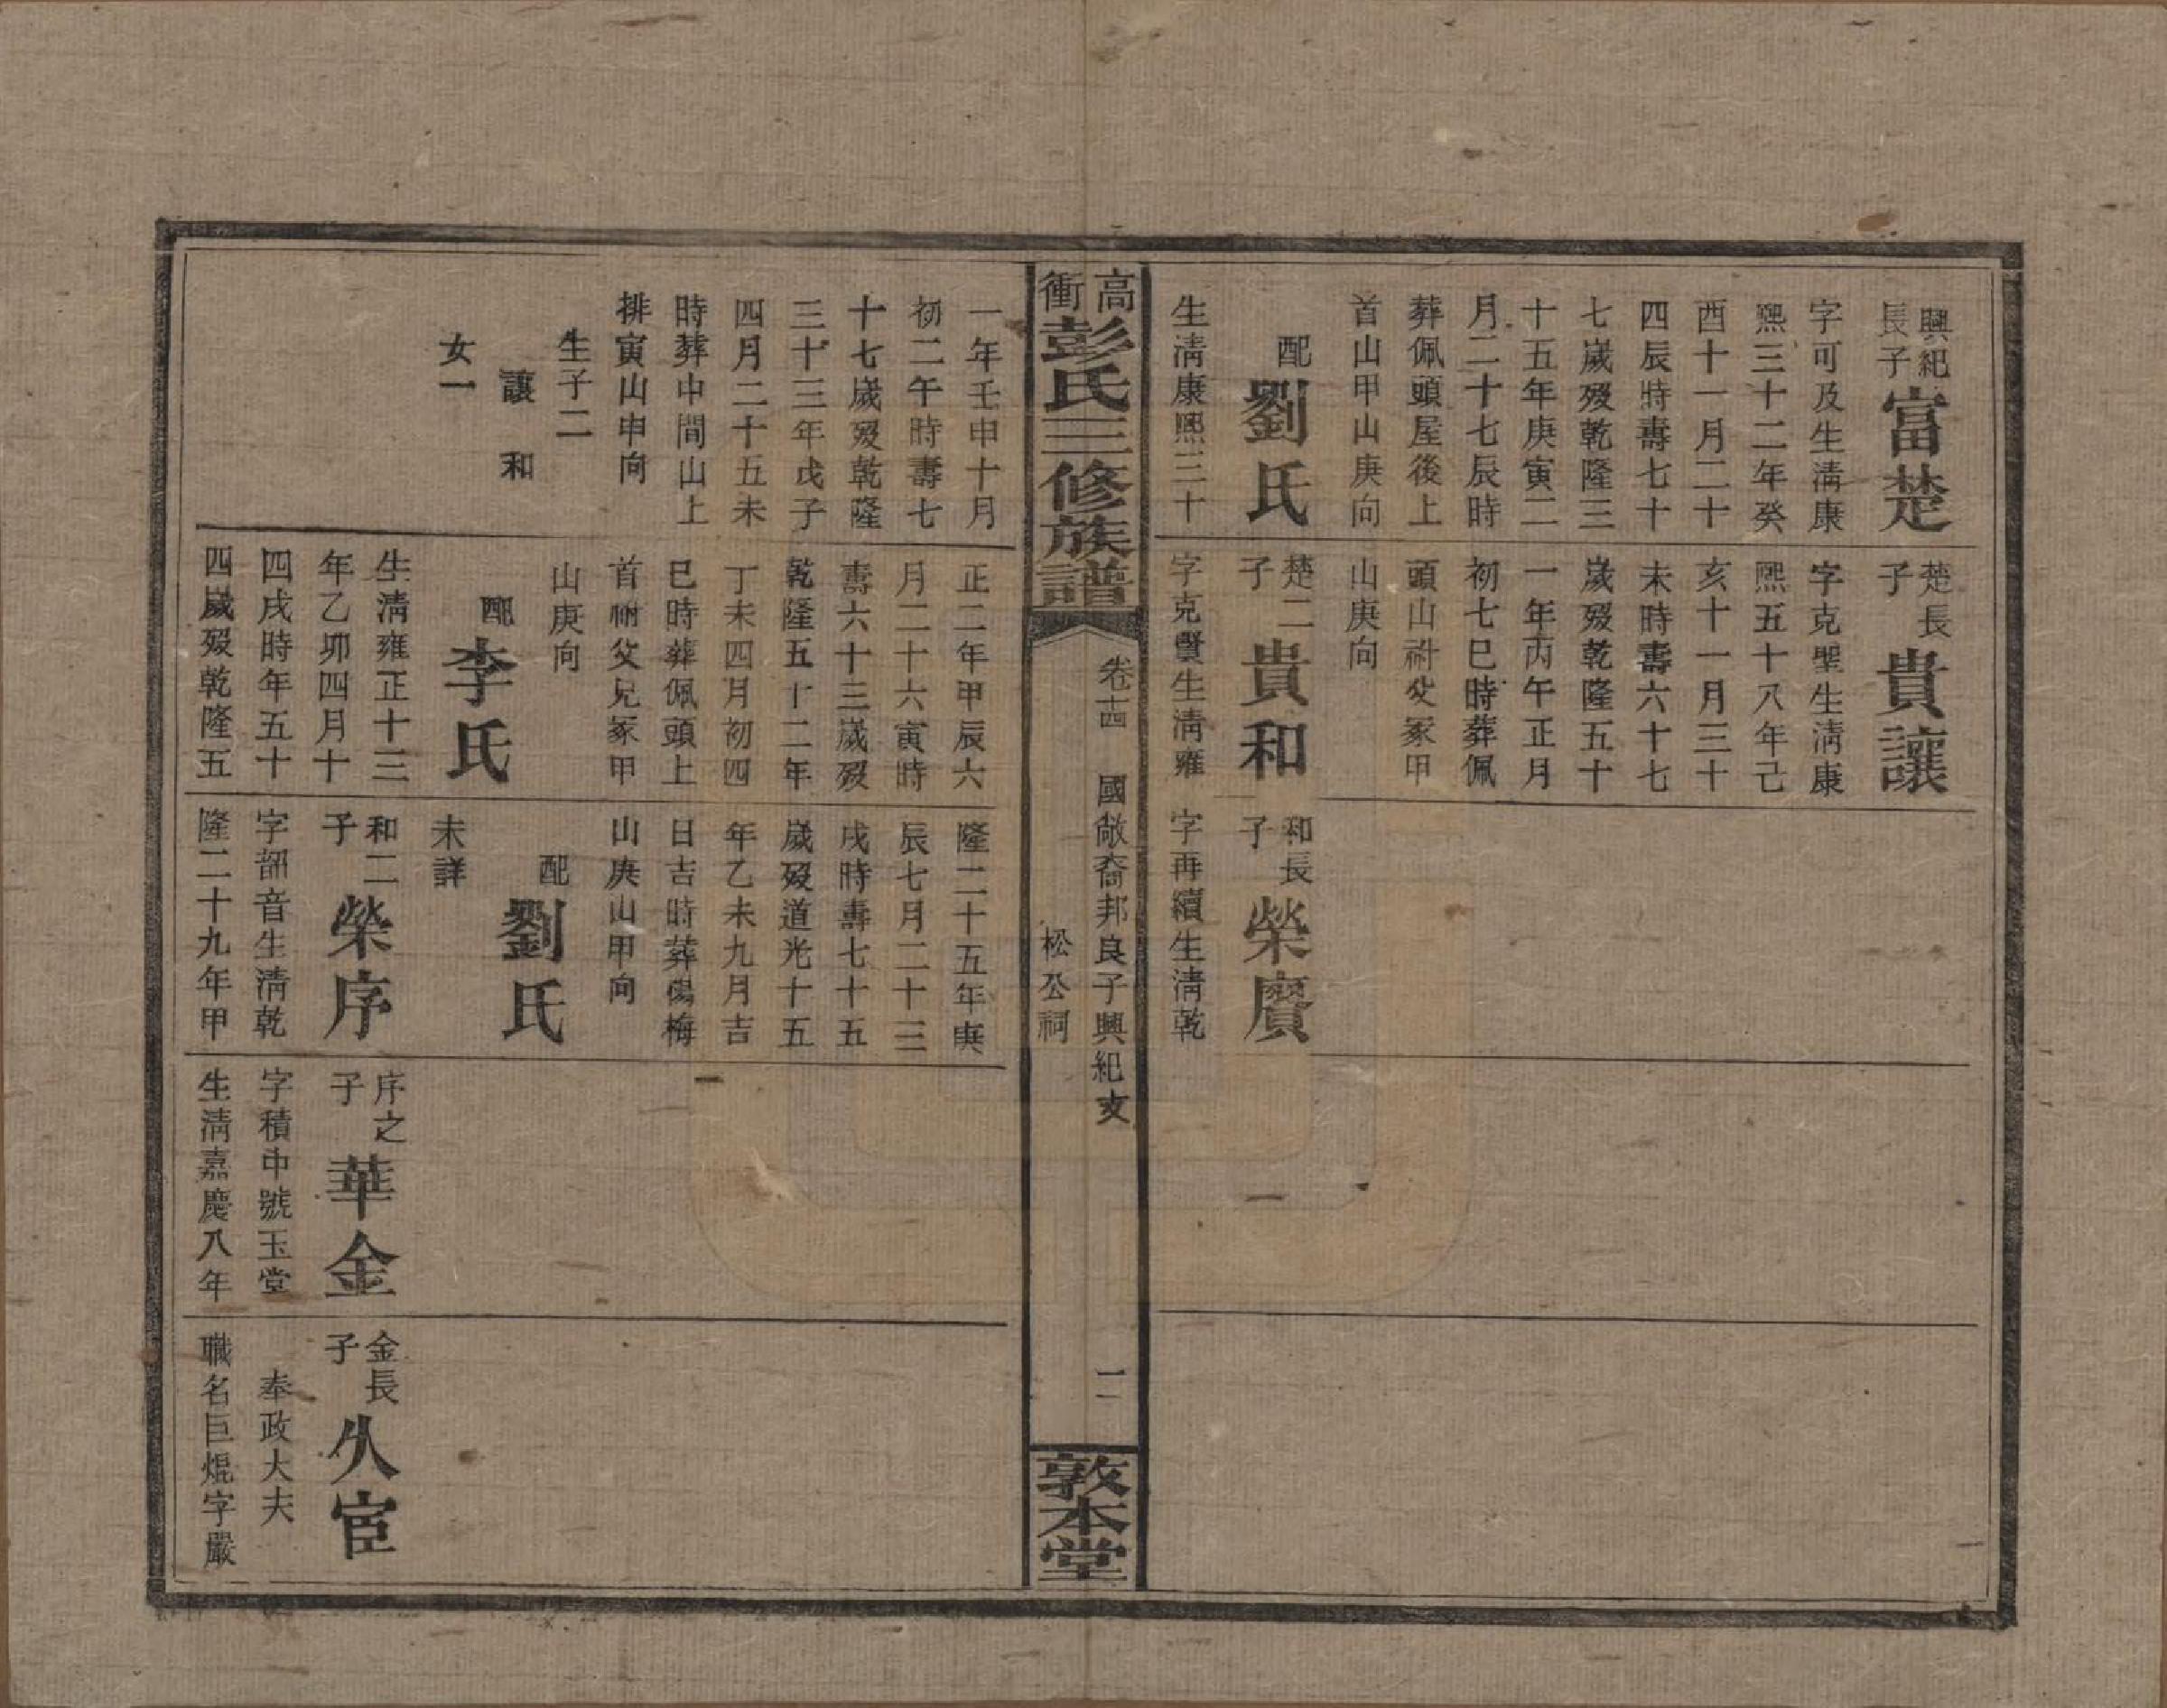 興紀
長子
富楚
字可及生淸康
熙三十二年癸
酉十一月二十
四辰時壽七十
七嵗歿乾隆三
十五年庚寅二
月二十七辰時
葬佩頭屋後上
首山甲山庚向
配
劉氏
生淸康熙三十
楚長
子
貴讓
字克聖生淸康
熙五十八年己
亥十一月三十
未時壽六十七
嵗歿乾隆五十
一年丙午正月
初七巳時葬佩
頭山祔父冢甲
山庚向
楚二
子
貴和
字克賢生淸雍
和長
子
榮賡
字再續生淸乾
高衝
彭氏三修族譜
卷十四
國敞裔邦良子興紀支
松公祠
二
敦本堂
一年壬申十月
初二午時壽七
十七嵗歿乾隆
三十三年戊子
四月二十五未
時葬中間山上
排寅山申向
生子二
讓 和
女一
正二年甲辰六
月二十六寅時
壽六十三嵗歿
乾隆五十二年
丁未四月初四
巳時葬佩頭上
首祔父兄冢甲
山庚向
配
李氏
生淸雍正十三
年乙卯四月十
四戌時年五十
四嵗歿乾隆五
隆二十五年庚
辰七月二十三
戌時壽七十五
嵗歿道光十五
年乙未九月吉
日吉時葬楊梅
山庚山甲向
配
劉氏
未詳
和二
子
榮序
字韶音生淸乾
隆二十九年甲
序之
子
華金
字積中號玉堂
生淸嘉慶八年
金長
子
久宦
奉政大夫
職名巨焜字嚴